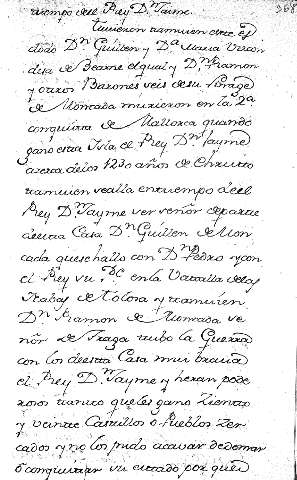 368
tiempo del Rey Dn Jayme.
tuvieron tamuien este es
tado Dn Guillen y Da Maria Vizcon
desa de Bearne el qual y Dn Ramon
y otros Barones seis de su linage
de Moncada murieron en la Sta
conquista de Mallorca quando
gano esta Isla el Rey Dn Jayme
acerca de los 1230 años de Christo
tamuien sealla en tiempo de el
Rey Dn Jayme ser señor de parte
de esta Casa Dn Guillen de Mon
cada que se hallo con Dn Pedro y con
el Rey su Pe en la Vatalla de las
Nabas de Tolosa y tamuien
Dn Ramon de Moncada se
ñor de Fraga tubo la Guerra
con los de esta Casa mui braua
el Rey Dn Jayme y heran pode
rosos tanto que les gano ziento
y veinte Castillos o Pueblos zer
cados y no los pudo acavar de domar
o conquistar su estado por que el